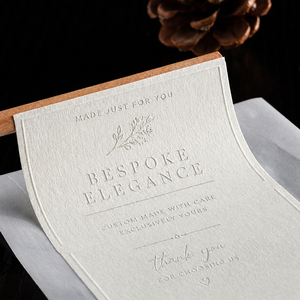 MADE JUST FOR YOU
BESPOKE
ELEGANCE
CUSTOM MADE WITH CARE
EXCLUSIVELY YOURS
thank you
FOR CHOOSING US